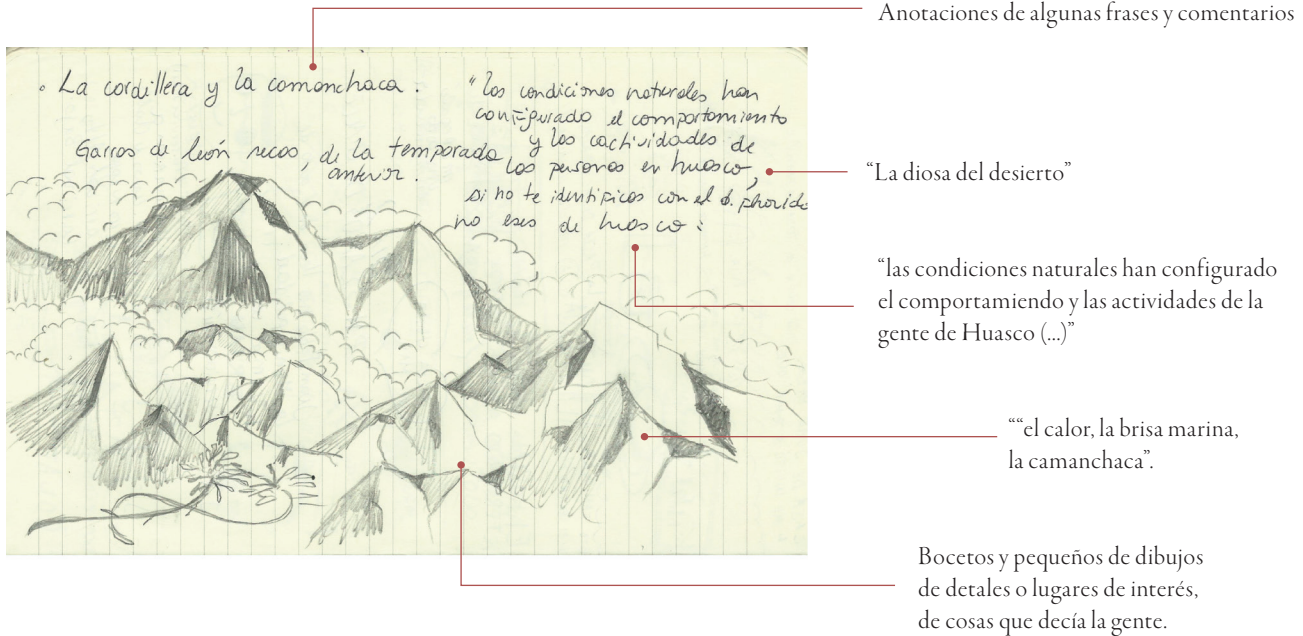 Anotaciones de algunas frases y comentarios
. La cordillera y la camanchaca.
Garras de león secas, de la temporada
anterior.
"las condiciones naturales han
configurado el comportamiento
y las cactividades de
las personas en huasco,
si no te identificas con el d. florido
no eres de huasco :
"La diosa del desierto"
"las condiciones naturales han configurado
el comportamiendo y las actividades de la
gente de Huasco (...)"
""el calor, la brisa marina,
la camanchaca".
Bocetos y pequeños de dibujos
de detalles o lugares de interés,
de cosas que decía la gente.